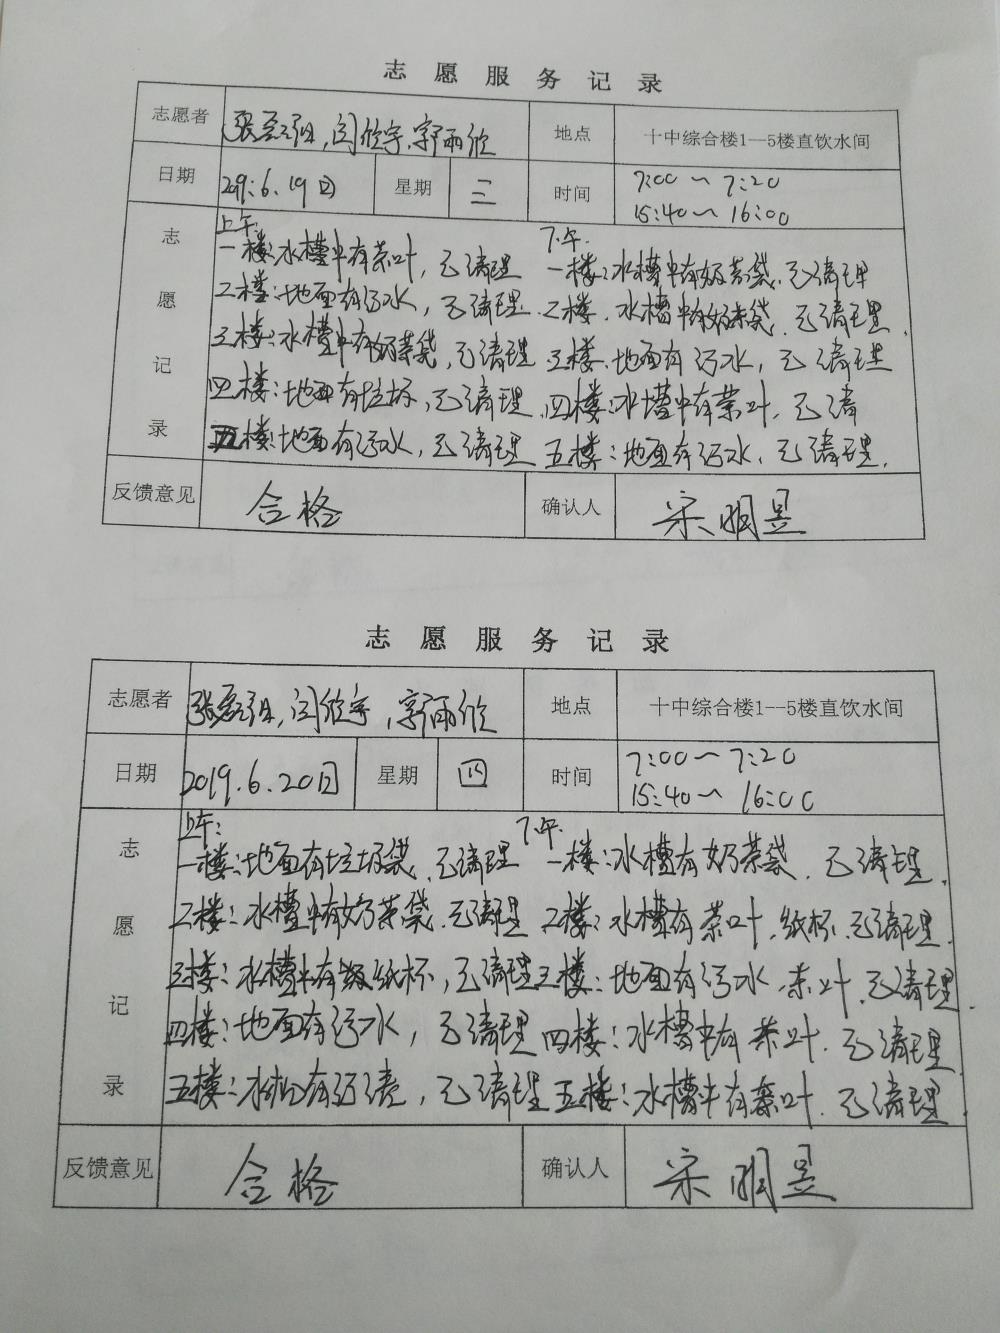 志愿服务记录
志愿者 张磊 闫欣宇, 郭雨欣 地点 十中综合楼1--5楼直饮水间
日期 2019.6.19日 星期 三 时间 7:00~7:20
15:40~16:00
志愿记录
上午: 下午.
一楼:水槽中有茶叶,已清理 一楼:水槽中有奶茶袋.已清理
二楼:地面有污水,已清理. 二楼.水槽中有奶茶袋.已清理.
三楼:水槽中有奶茶袋,已清理 三楼.地面有污水,已清理
四楼:地面有垃圾,已清理. 四楼:水槽中有茶叶,已清
五楼:地面有污水,已清理 五楼:地面有污水,已清理.
反馈意见 合格 确认人 宋明昱
志愿服务记录
志愿者 张磊 闫欣宇,郭雨欣 地点 十中综合楼1--5楼直饮水间
日期 2019.6.20日 星期 四 时间 7:00~7:20
15:40~16:00
志愿记录
上午: 下午.
一楼:地面有垃圾袋.已清理 一楼:水槽有奶茶袋.已清理.
二楼:水槽中有奶茶袋.已清理 二楼:水槽有茶叶.纸杯.已清理.
三楼:水槽中有纸杯,已清理 三楼:地面有污水.茶叶.已清理.
四楼:地面有污水,已清理 四楼:水槽中有茶叶.已清理.
五楼:水机有污渍,已清理 五楼:水槽中有茶叶.已清理.
反馈意见 合格 确认人 宋明昱